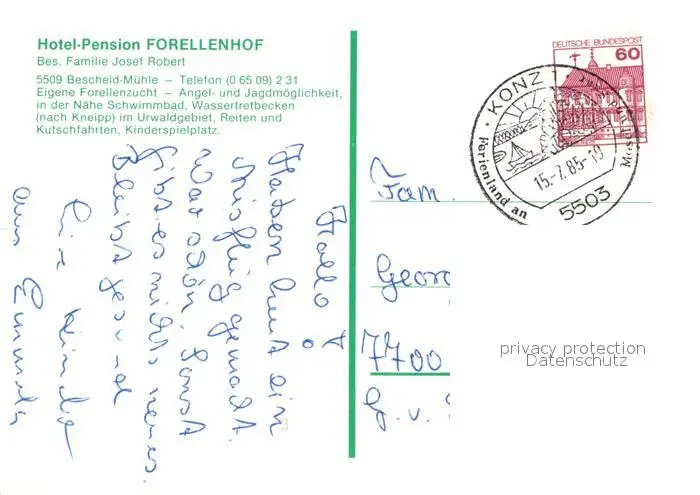 Hotel-Pension FORELLENHOF
Bes. Familie Josef Robert
5509 Bescheid-Mühle – Telefon (0 65 09) 2 31
Eigene Forellenzucht – Angel- und Jagdmöglichkeit,
in der Nähe Schwimmbad, Wassertretbecken
(nach Kneipp) im Urwaldgebiet, Reiten und
Kutschfahrten, Kinderspielplatz.
Hallo
Haben heut ein
Ausflug gemacht.
War schön. Sonst
gibt es nichts neues.
Bleibt gesund
DEUTSCHE BUNDESPOST
60
KONZ
Ferienland an
Mosel
15.-7.85-19
5503
Fam.
Georg
7700
privacy protection
Datenschutz